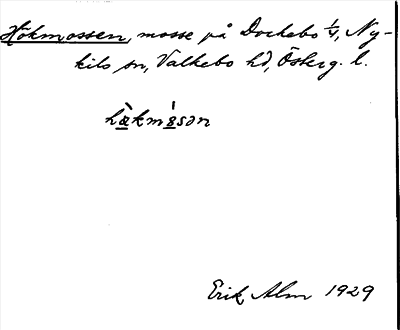 Hökmossen, mosse på Dockebo 1/4, Ny-
kils sn, Valkebo hd, Österg. l.
hö̀kmósən
Erik Alm 1929